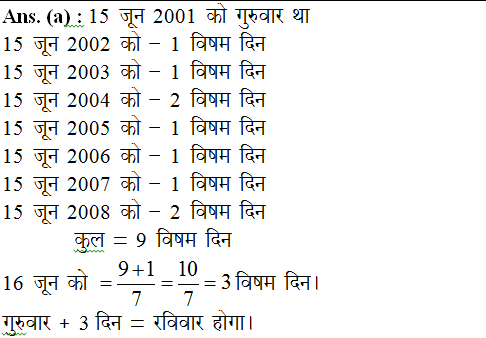 Ans. (a) : 15 जून 2001 को गुरुवार था
15 जून 2002 को – 1 विषम दिन
15 जून 2003 को – 1 विषम दिन
15 जून 2004 को – 2 विषम दिन
15 जून 2005 को – 1 विषम दिन
15 जून 2006 को – 1 विषम दिन
15 जून 2007 को – 1 विषम दिन
15 जून 2008 को – 2 विषम दिन
कुल = 9 विषम दिन
16 जून को = (9+1)/7 = 10/7 = 3 विषम दिन।
गुरुवार + 3 दिन = रविवार होगा।